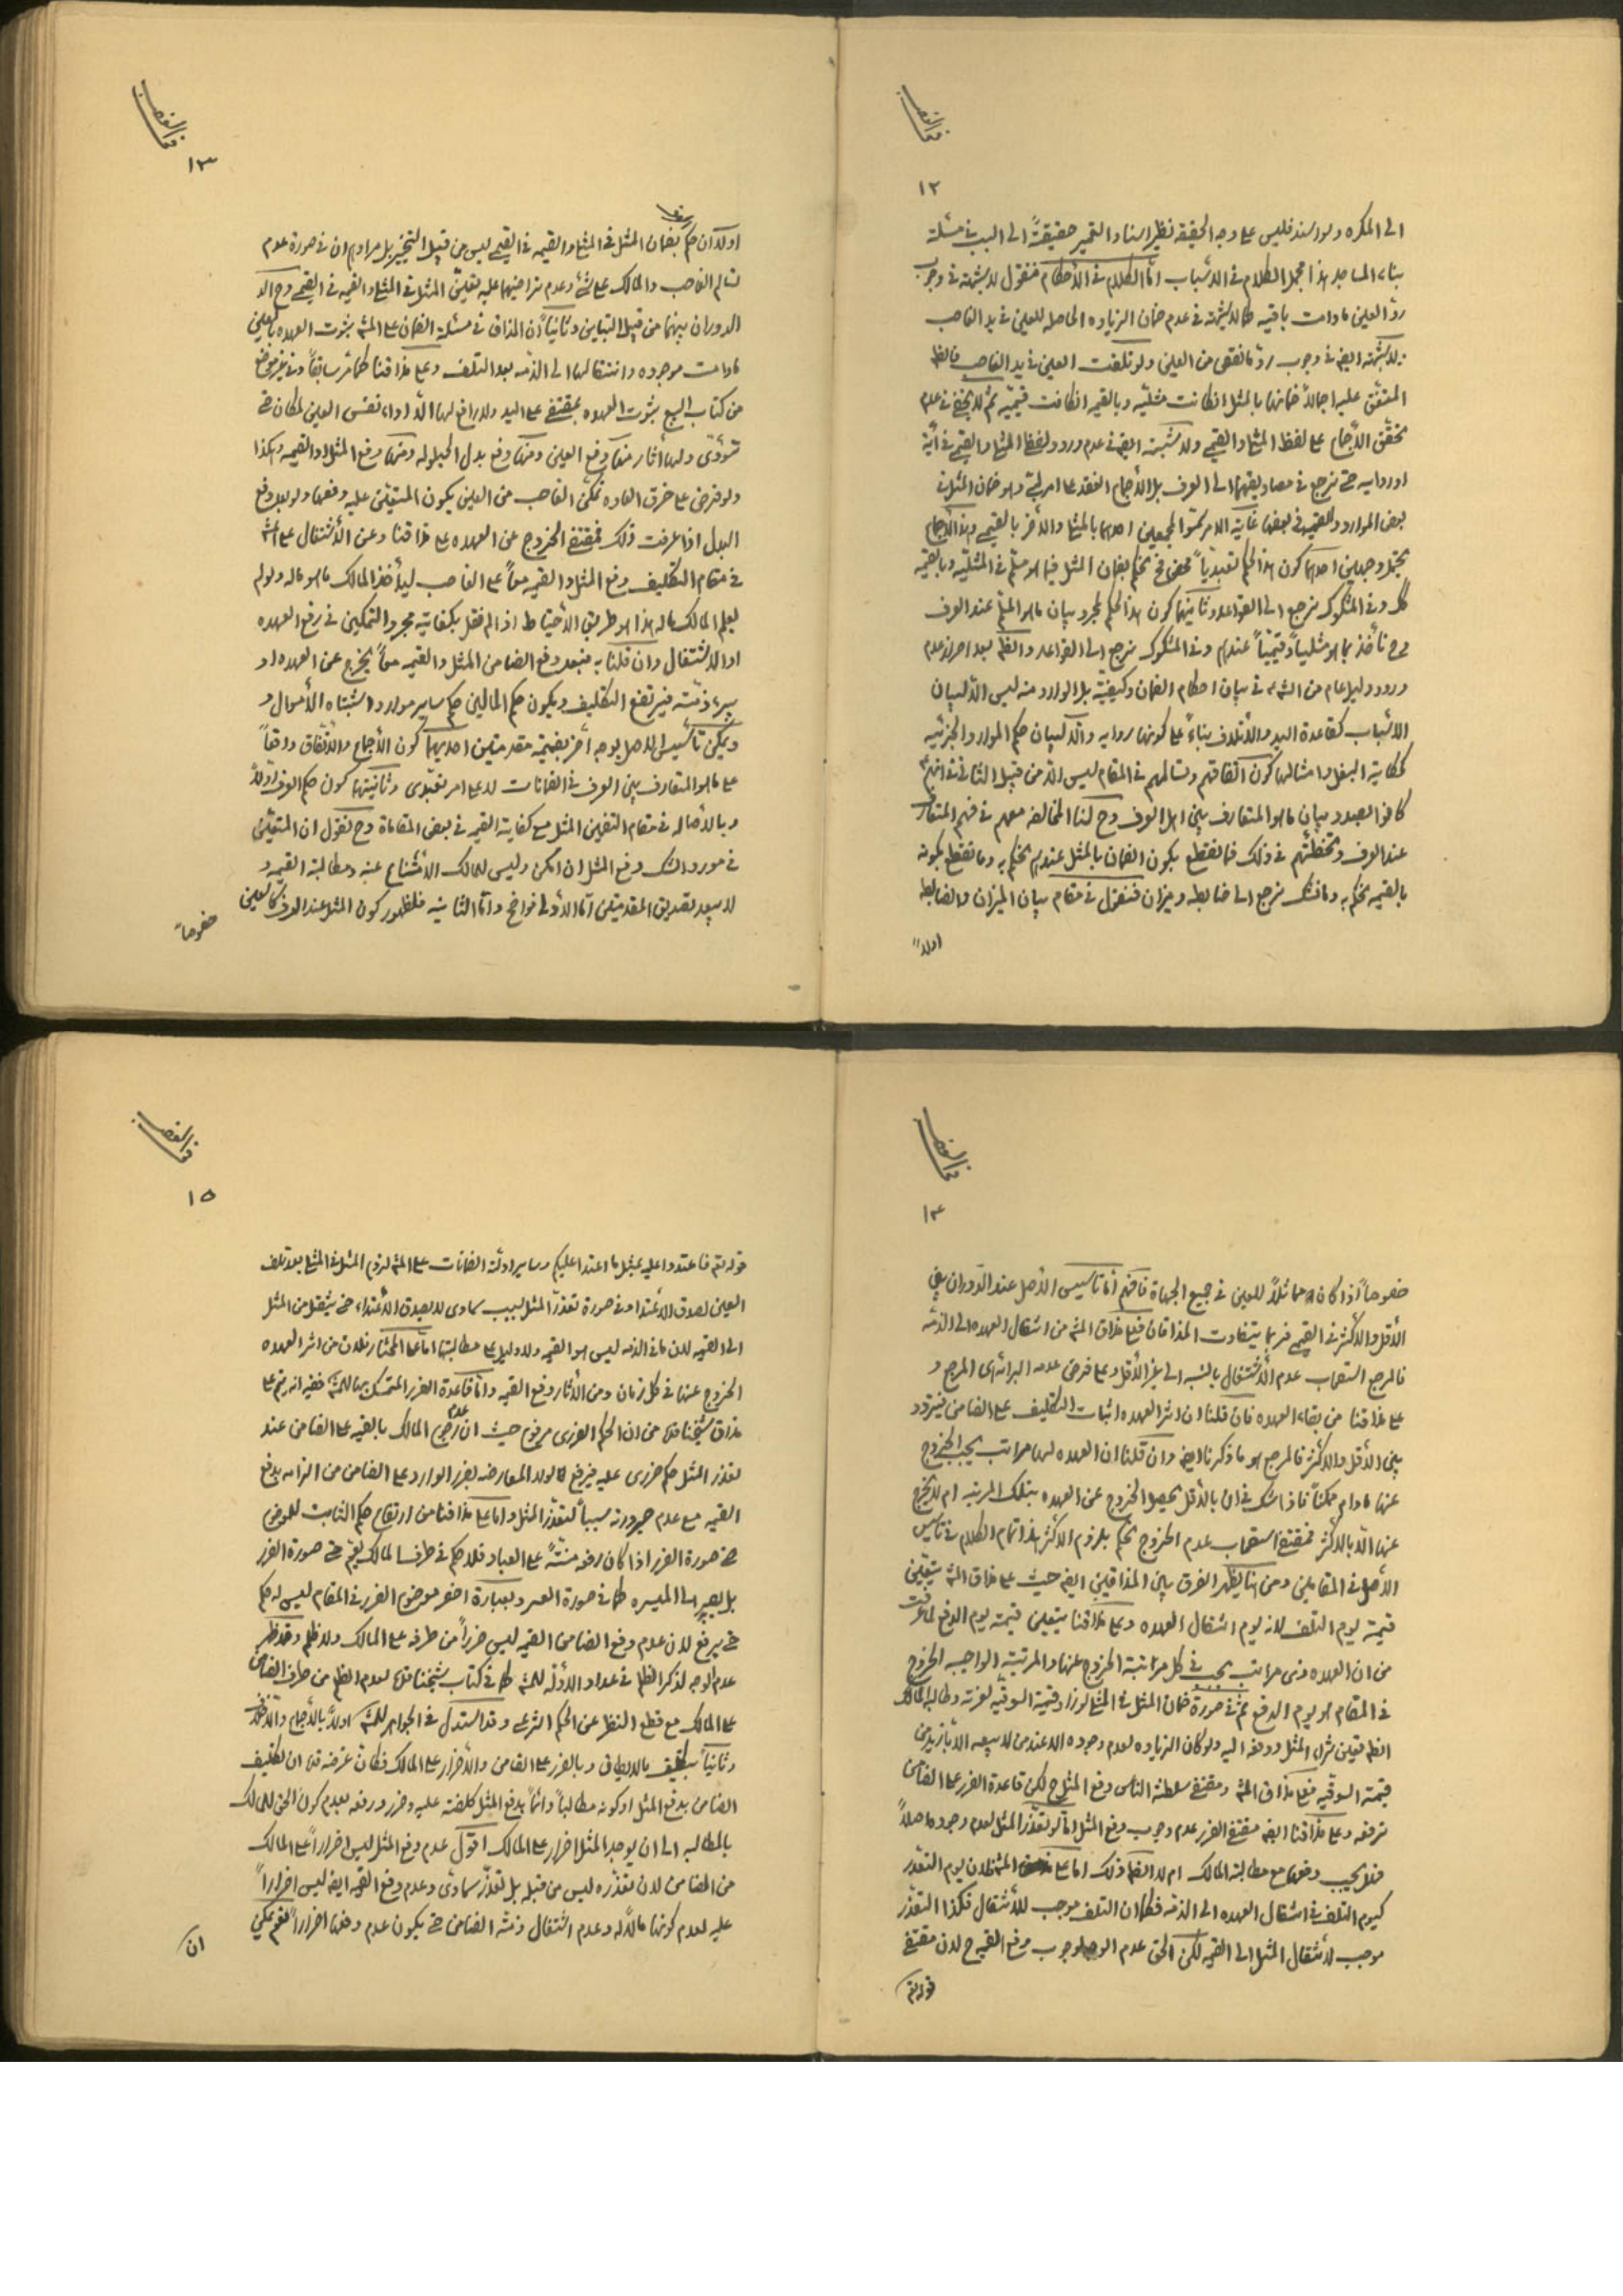 ١٢
الى المكره ولو اسند فليس على وجه الحقيقة نظير اسناد التعمير حقيقةً الى السبب في مسئلة
بناء المساجد هذا مجمل الكلام في الاسباب امّا الكلام في الأحكام فنقول لا شبهة في وجوب
ردّ العين ما دامت باقيه كما لا شبهة في عدم ضمان الزياده الحاصله للعين في يد الغاصب
لا شبهة ايضا في وجوب ردّ ما نقص من العين ولو تلفت العين في يد الغاصب فالظ
المتفق عليه اجمالاً ضمانها بالمثل ان كانت مثليّه وبالقيمه ان كانت قيميّه ثم لا يخفى عدم
تحقّق الأجماع على لفظ المثلي والقيمي ولا شبهة ايضا في عدم ورود لفظ المثلي والقيمي في آية
او روايه حتى نرجع في مصاديقهما الى العرف بل الأجماع انعقد على امر لبّي وهو ضمان المثل في
بعض الموارد والقيمة في بعضها غاية الامر سمّوا المجمعين احدهما بالمثلي والأخر بالقيمي وهذا الأجماع
يحتمل وجهين احدهما كون هذا الحكم تعبدياً محضا فح نحكم بضمان المثل فيما هو مسلّم في المثليه وبالقيمه
كك وفي المشكوك نرجع الى القواعد وثانيهما كون هذا الحكم لمجرد بيان ما هو المسلّم عند العرف
فح نأخذ بما هو مثلياً وقيمياً عندهم وفي المشكوك نرجع الى القواعد والظ بعد احراز عدم
ورود دليل عام من الشرع في بيان احكام الضمان وكيفيته بل الوارد منه ليس الّا لبيان
الاسباب كقاعدة اليد والأتلاف بناءً على كونها روايه والّا لبيان حكم الموارد الجزئيه
كحكاية البغل وامثالها كون اتفاقهم وتسالمهم في المقام ليس الّا من قبيل الثاني فانهم
كانوا بصدد بيان ما هو المتعارف بين اهل العرف وح لنا المخالفه معهم في فهم المتعارف
عند العرف وتخطئتهم في ذلك فما نقطع بكون الضمان بالمثل عندهم نحكم به وما نقطع بكونه
بالقيمه نحكم به وما نشك نرجع الى ضابطه وميزان فنقول في مقام بيان الميزان والضابطه
اولاً
١٣
اولاً ان حكم بضمان المثل في المثلي والقيمه في القيمي ليس من قبيل التخيير بل مرادهم ان في صورة عدم
تسالم الغاصب والمالك على شئ وعدم تراضيهما عليه تعيّن المثل في المثلي والقيمه في القيمي وح
الدوران بينهما من قبيل التباين وثانياً ان المذاق في مسئلة الضمان على المش ثبوت العهده بالعين
مادامت موجوده وانتقالها الى الذمه بعد التلف وعلى مذاقنا كما مرّ سابقاً وفي غير موضع
من كتاب البيع ثبوت العهده بمقتضى على اليد ولا رافع لها الّا اداء نفس العين لمكان حتى
تؤدّى ولها أثار منها دفع العين ومنها دفع بدل الحيلوله ومنها دفع المثل او القيمه وهكذا
ولو فرض على خرق العاده تمكّن الغاصب من العين يكون المتعيّن عليه دفعها ولو بعد دفع
البدل اذا عرفت ذلك فمقتضى الخروج عن العهده على مذاقنا وعن الأشتغال على المش
في مقام التكليف دفع المثل والقيمه معاً على الغاصب ليأخذ المالك ما هو ماله ولو لم
يعلم المالك ماله هذا هو طريق الأحتياط اذا لم نقل بكفاية مجرد التمكين في رفع العهده
او الاشتغال وان قلنا به فبعد دفع الضامن المثل والقيمه معاً يخرج عن العهده او
يبرء ذمّته فيرتفع التكليف ويكون حكم المالين حكم ساير موارد اشتباه الأموال و
ويمكن تأسيس الاصل بوجه أخر بضميمة مقدمتين احديهما كون الأجماع والاتّفاق واقعاً
على ما هو المتعارف بين العرف في الضمانات لا على امر تعبّدى وثانيتهما كون حكم العرف اولاً
وبالأصاله في مقام التضمين المثل مع كفاية القيمه في بعض المقاماة وح نقول ان المتعيّن
في مورد الشك دفع المثل ان امكن وليس للمالك الامتناع عنه ومطالبة القيمه و
لا يبعد تصديق المقدمتين امّا الأولى فواضح وامّا الثانيه فلظهور كون المثل عند العرف كالعين
خصوصاً
١٤
خصوصاً اذا كان مماثلاً للعين في جميع الجهاة فافهم امّا تأسيس الأصل عند الدوران بين
الأقل والاكثر في القيمي فربما يتفاوت المذاقان فعلى مذاق المش من انتقال العهده الى الذمّه
فالمرجع استصحاب عدم الأشتغال بالنسبه الى غير الأقل وعلى فرض عدمه البرائة هي المرجع و
على مذاقنا من بقاء العهده فان قلنا ان اثر العهده اثبات التكليف على الضامن فيتردد
بين الأقل والاكثر فالمرجع هو ما ذكرنا ايضا وان قلنا ان العهده لها مراتب يجب الخروج
عنها مادام ممكناً فاذا شك في ان بالأقل يحصل الخروج عن العهده بتلك المرتبه ام لا يخرج
عنها الّا بالاكثر فمقتضى استصحاب عدم الخروج نحكم بلزوم الاكثر هذا تمام الكلام في تأسيس
الأصل في المقامين ومن هنا يظهر الفرق بين المذاقين ايضا حيث على مذاق المش يتعيّن
قيمة يوم التلف لانه يوم انتقال العهده وعلى مذاقنا يتعين قيمته يوم الدفع لما عرفت
من ان العهده ذى مراتب يجب في كل مراتبة الخروج عنها والمرتبة الواجب الخروج
في المقام هو يوم الدفع ثمّ في صورة ضمان المثل في المثلي لو زاد قيمة السوقيه لعزته وطالبه المالك
الظ تعين شراء المثل ودفعه اليه ولو كان الزياده لعدم وجوده الا عند من لا يبيعه الا بأزيد من
قيمته السوقيه فعلى مذاق المش ومقتضى سلطنة الناس دفع المثل ح لكن قاعدة الضرر على الضامن
ترفعه وعلى مذاقنا ايضا مقتضى الضرر عدم وجوب دفع المثل امّا لو تعذّر المثل لعدم وجوده اصلاً
فهل يجب دفعها مع مطالبة المالك ام لا الظ ذلك اما على المش فلان يوم التعذر
كيوم التلف في انتقال العهده الى الذمه فكما ان التلف موجب للأنتقال فكذا التعذّر
موجب لأنتقال المثل الى القيمه لكن الحق عدم الوجه لوجوب دفع القيمه ح لان مقتضى
قوله تم
١٥
قوله تم فاعتدوا عليه بمثل ما اعتدا عليكم وساير ادلّة الضمانات على المش لزوم المثل في المثلي بعد تلف
العين لصدق الاعتداء وفي صورة تعذّر المثل بسبب سماوى لا يصدق الأعتداء حتى ينتقل من المثل
الى القيمه لان ما في الذمه ليس هو القيمه ولا دليل على مطالبتها امّا على المختار فلان من اثر العهده
الخروج عنها في كل زمان ومن الأثار دفع القيمه وامّا قاعدة الضرر المتمسك بها للمش ففيه انه يتم على
مذاق شيخنا قده من ان الحكم الضررى مرفوع حيث ان عدم رجوع المالك بالقيمه على الضامن عند
تعذر المثل حكم ضررى عليه فيرفع لولا المعارضه بضرر الوارد على الضامن من الزامه بدفع
القيمه مع عدم صيرورته سبباً لتعذّر المثل واما على مذاقنا من ارتفاع حكم الثابت للموضوع
في صورة الضرر اذا كان رفعه منّةً على العباد فلا حكم في طرف المالك يعمّ حتى صورة الضرر
بل يصير الى الميسره كما في صورة العسر وبعبارة اخصر موضوع الضرر في المقام ليس له حكم
حتى يرفع لان عدم دفع الضامن القيمه ليس ضرراً من طرفه على المالك ولا ظلم وقد ظهر
عدم الوجه لذكر الظلم في عداد الادلّه للمش كما في كتاب شيخنا قده لعدم الظلم من طرف الضامن
على المالك مع قطع النظر عن الحكم الشرعى وقد استدل في الجواهر للمش اولاً بالأجماع
وثانياً بتكليف بالا يطاق وبالضرر على الضامن والأضرار على المالك فكان غرضه قده ان تكليف
الضامن بدفع المثل او كونه مطالباً دائماً بدفع المثل كلفته عليه وضرر ورفعه بعدم كون الحق للمالك
بالمطالبه الى ان يوجد المثل اضرار على المالك اقول عدم دفع المثل ليس اضراراً على المالك
من الضامن لان تعذّره ليس من قبله بل تعذّر سماوىّ وعدم دفع القيمه ايضا ليس اضراراً
عليه لعدم كونها مالاً له وعدم اشتغال ذمّة الضامن حتى يكون عدم دفعها اضراراً نعم يمكن
ان